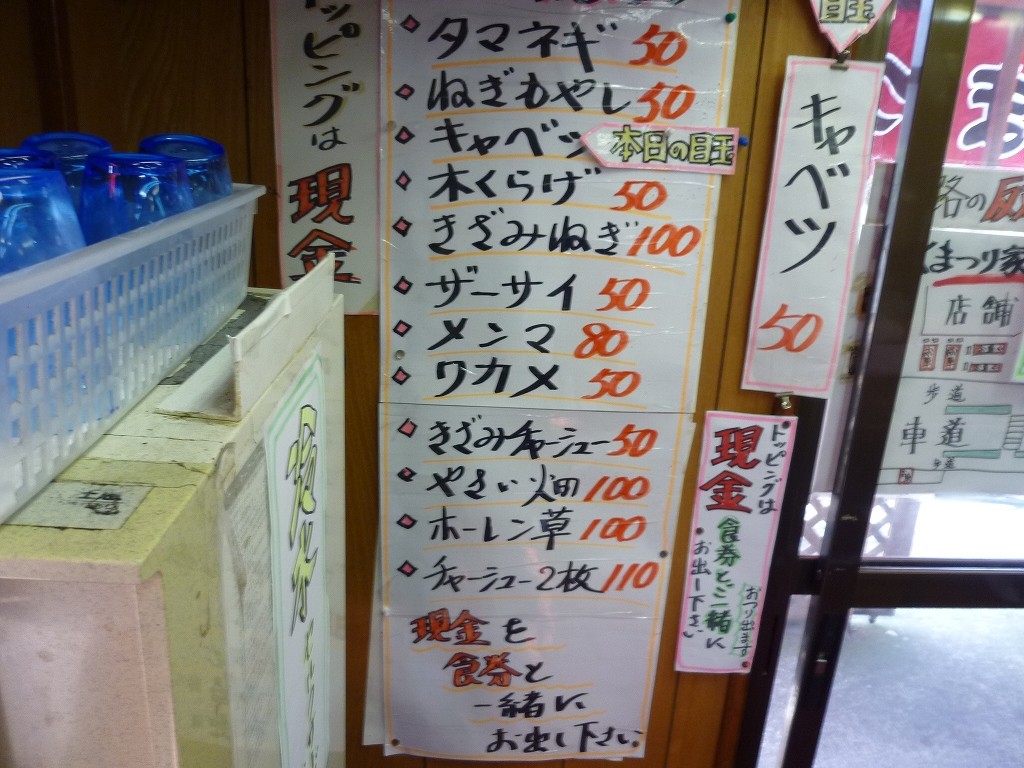 トッピングは
現金
タマネギ 50
ねぎもやし 50
キャベツ
本日の目玉
木くらげ 50
きざみねぎ 100
ザーサイ 50
メンマ 80
ワカメ 50
きざみチャーシュー 50
やさい畑 100
ホーレン草 100
チャーシュー2枚 110
現金を
食券と
一緒に
お出し下さい
目玉
キャベツ
50
トッピングは
現金
食券と一緒に
お出し下さい
おつり出ます
店舗
歩道
車道